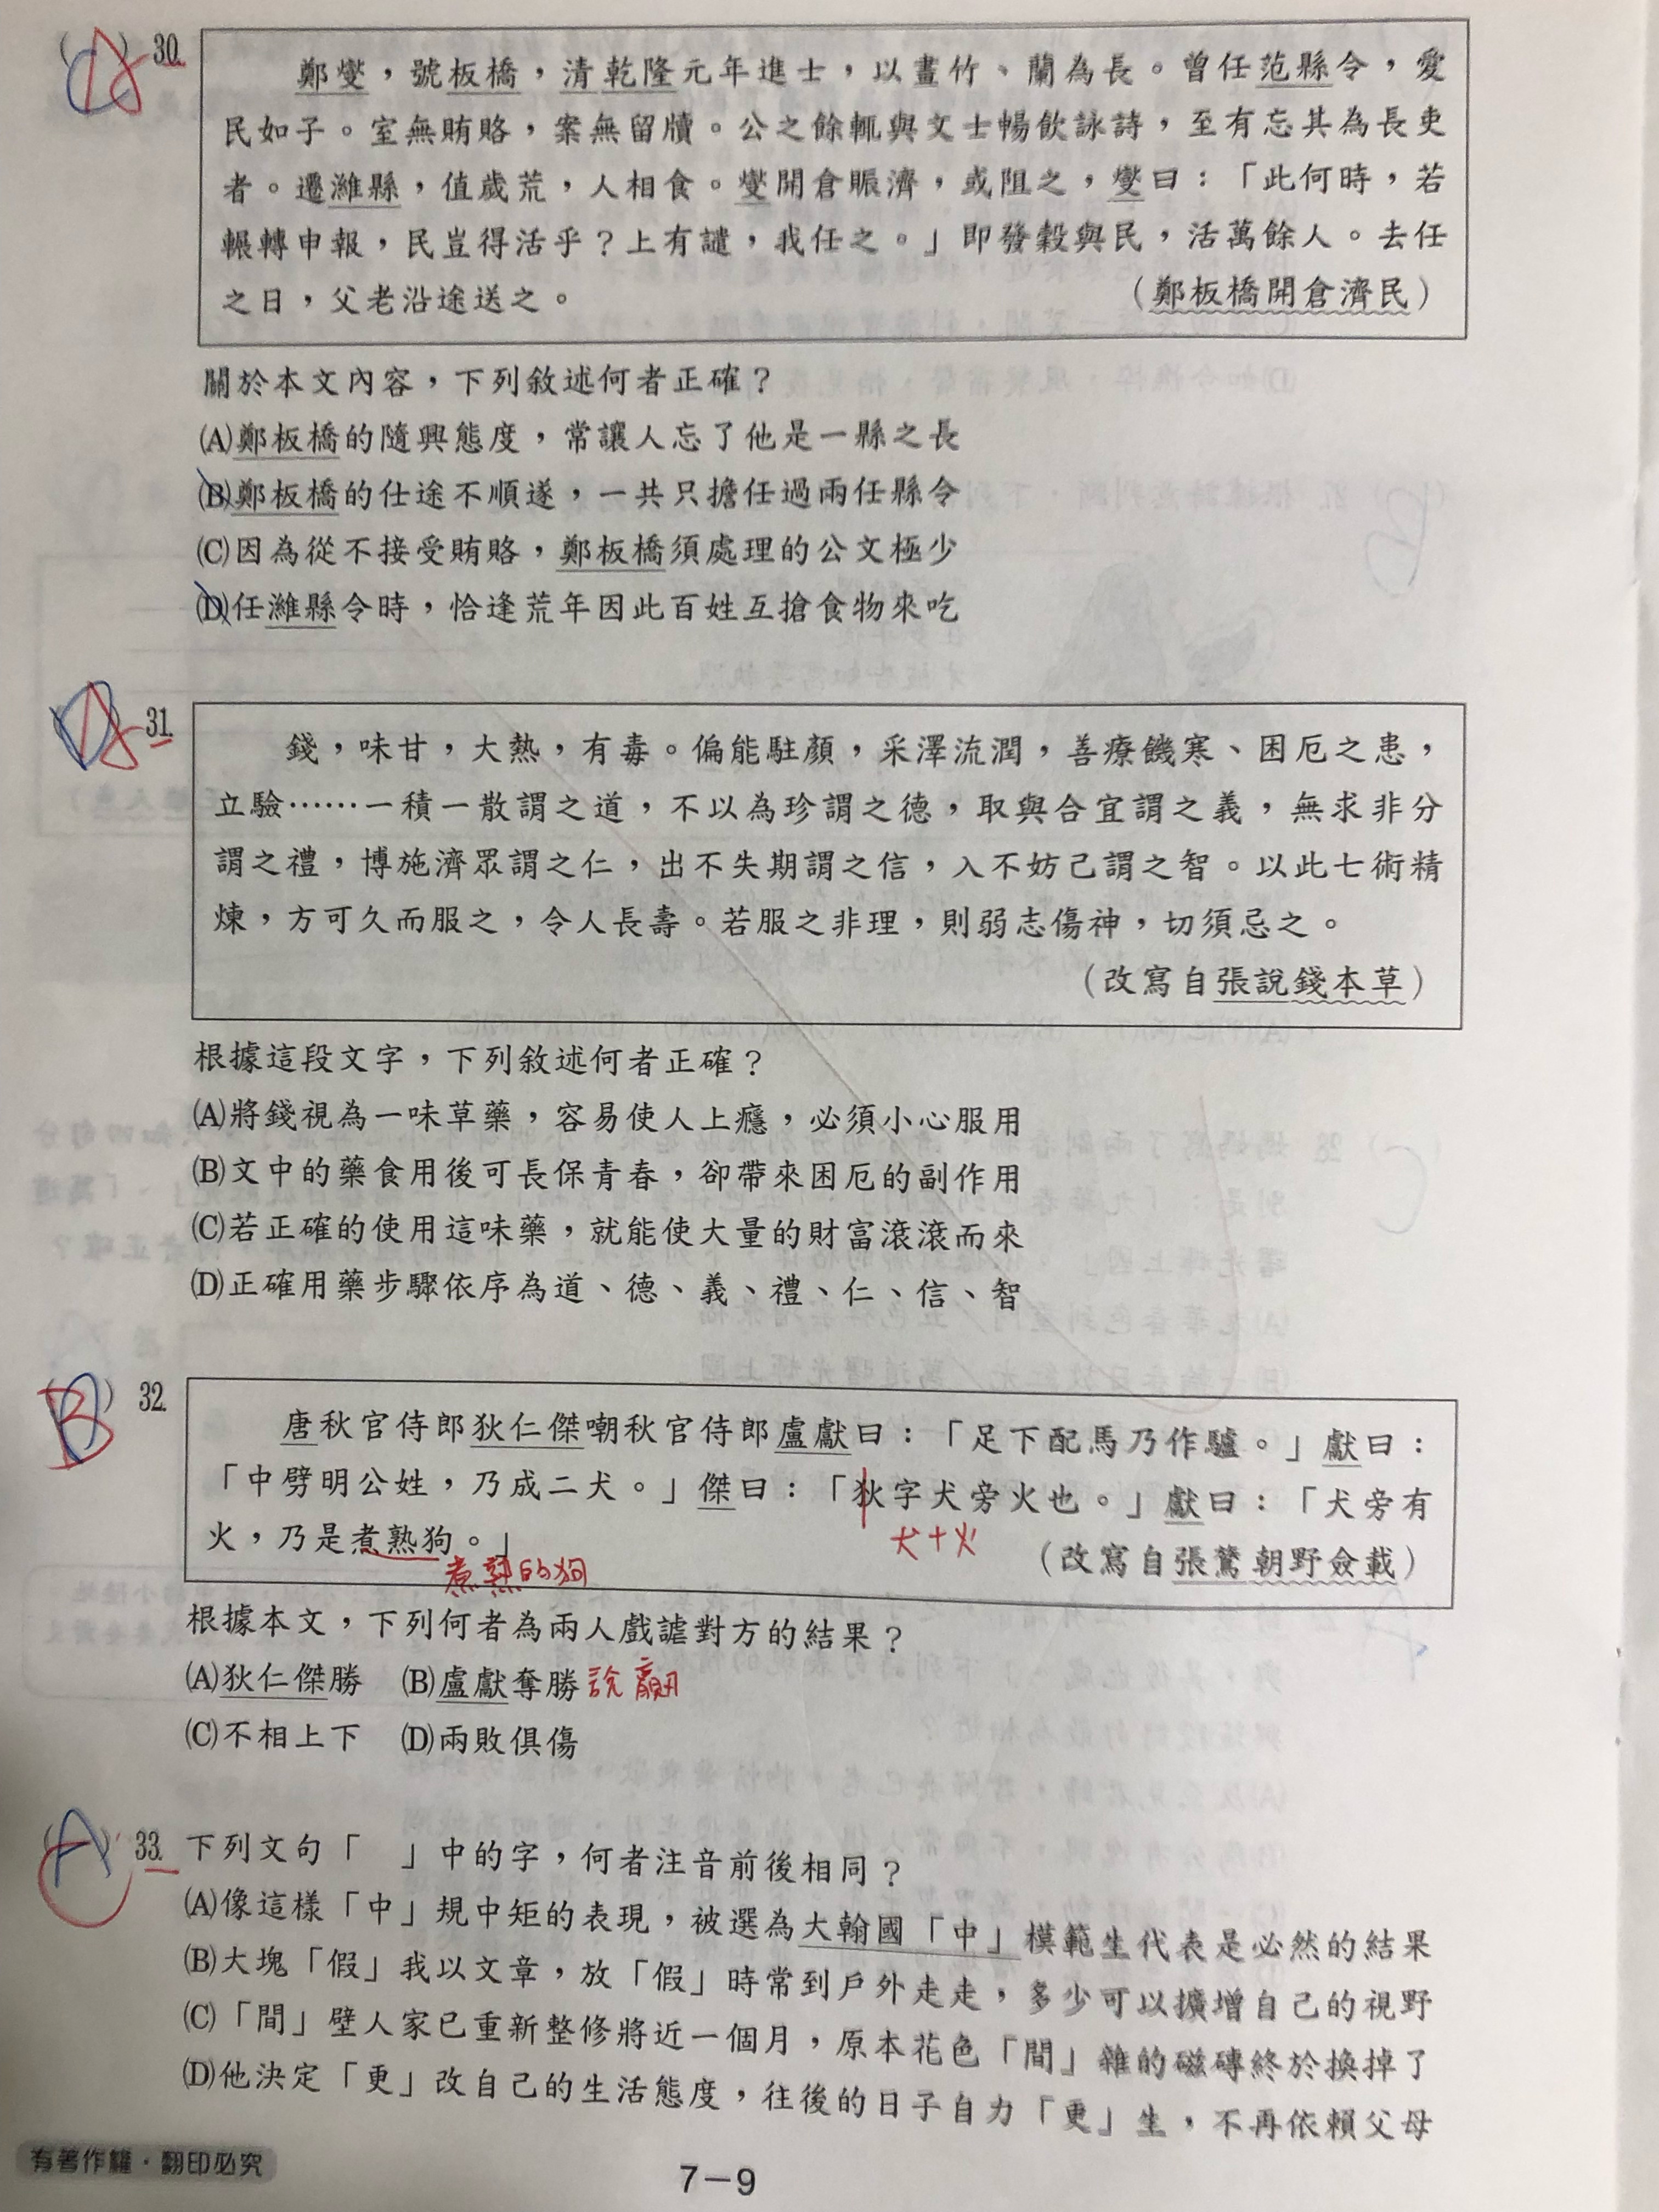 (A) 30. 鄭燮，號板橋，清乾隆元年進士，以畫竹、蘭為長。曾任范縣令，愛
民如子。室無賄賂，案無留牘。公之餘輒與文士暢飲詠詩，至有忘其為長吏
者。遷濰縣，值歲荒，人相食。燮開倉賑濟，或阻之，燮曰：「此何時，若
輾轉申報，民豈得活乎？上有譴，我任之。」即發穀與民，活萬餘人。去任
之日，父老沿途送之。　（鄭板橋開倉濟民）
關於本文內容，下列敘述何者正確？
(A)鄭板橋的隨興態度，常讓人忘了他是一縣之長
(B)鄭板橋的仕途不順遂，一共只擔任過兩任縣令
(C)因為從不接受賄賂，鄭板橋須處理的公文極少
(D)任濰縣令時，恰逢荒年因此百姓互搶食物來吃
(A) 31. 錢，味甘，大熱，有毒。偏能駐顏，采澤流潤，善療饑寒、困厄之患，
立驗……一積一散謂之道，不以為珍謂之德，取與合宜謂之義，無求非分
謂之禮，博施濟眾謂之仁，出不失期謂之信，入不妨己謂之智。以此七術精
煉，方可久而服之，令人長壽。若服之非理，則弱志傷神，切須忌之。
（改寫自張說錢本草）
根據這段文字，下列敘述何者正確？
(A)將錢視為一味草藥，容易使人上癮，必須小心服用
(B)文中的藥食用後可長保青春，卻帶來困厄的副作用
(C)若正確的使用這味藥，就能使大量的財富滾滾而來
(D)正確用藥步驟依序為道、德、義、禮、仁、信、智
(B) 32. 唐秋官侍郎狄仁傑嘲秋官侍郎盧獻曰：「足下配馬乃作驢。」獻曰：
「中劈明公姓，乃成二犬。」傑曰：「狄字犬旁火也。」獻曰：「犬旁有
火，乃是煮熟狗。」
犬+火
煮熟的狗
（改寫自張鷟朝野僉載）
根據本文，下列何者為兩人戲謔對方的結果？
(A)狄仁傑勝　(B)盧獻奪勝 說贏
(C)不相上下　(D)兩敗俱傷
(A) 33. 下列文句「　」中的字，何者注音前後相同？
(A)像這樣「中」規中矩的表現，被選為大翰國「中」模範生代表是必然的結果
(B)大塊「假」我以文章，放「假」時常到戶外走走，多少可以擴增自己的視野
(C)「間」壁人家已重新整修將近一個月，原本花色「間」雜的磁磚終於換掉了
(D)他決定「更」改自己的生活態度，往後的日子自力「更」生，不再依賴父母
有著作權・翻印必究
7－9